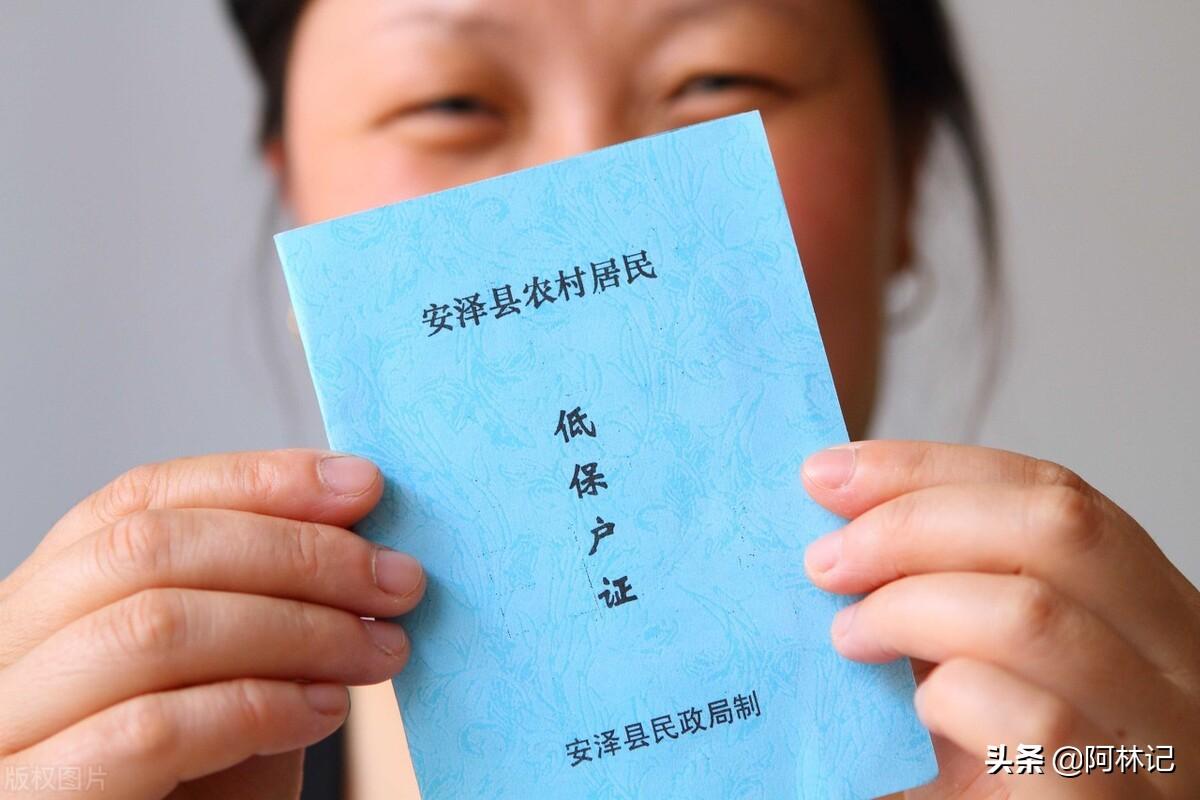 安泽县农村居民
低
保
户
证
安泽县民政局制
版权图片
头条 @阿林记